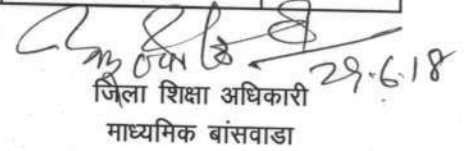 29.6.18
जिला शिक्षा अधिकारी
माध्यमिक बांसवाडा